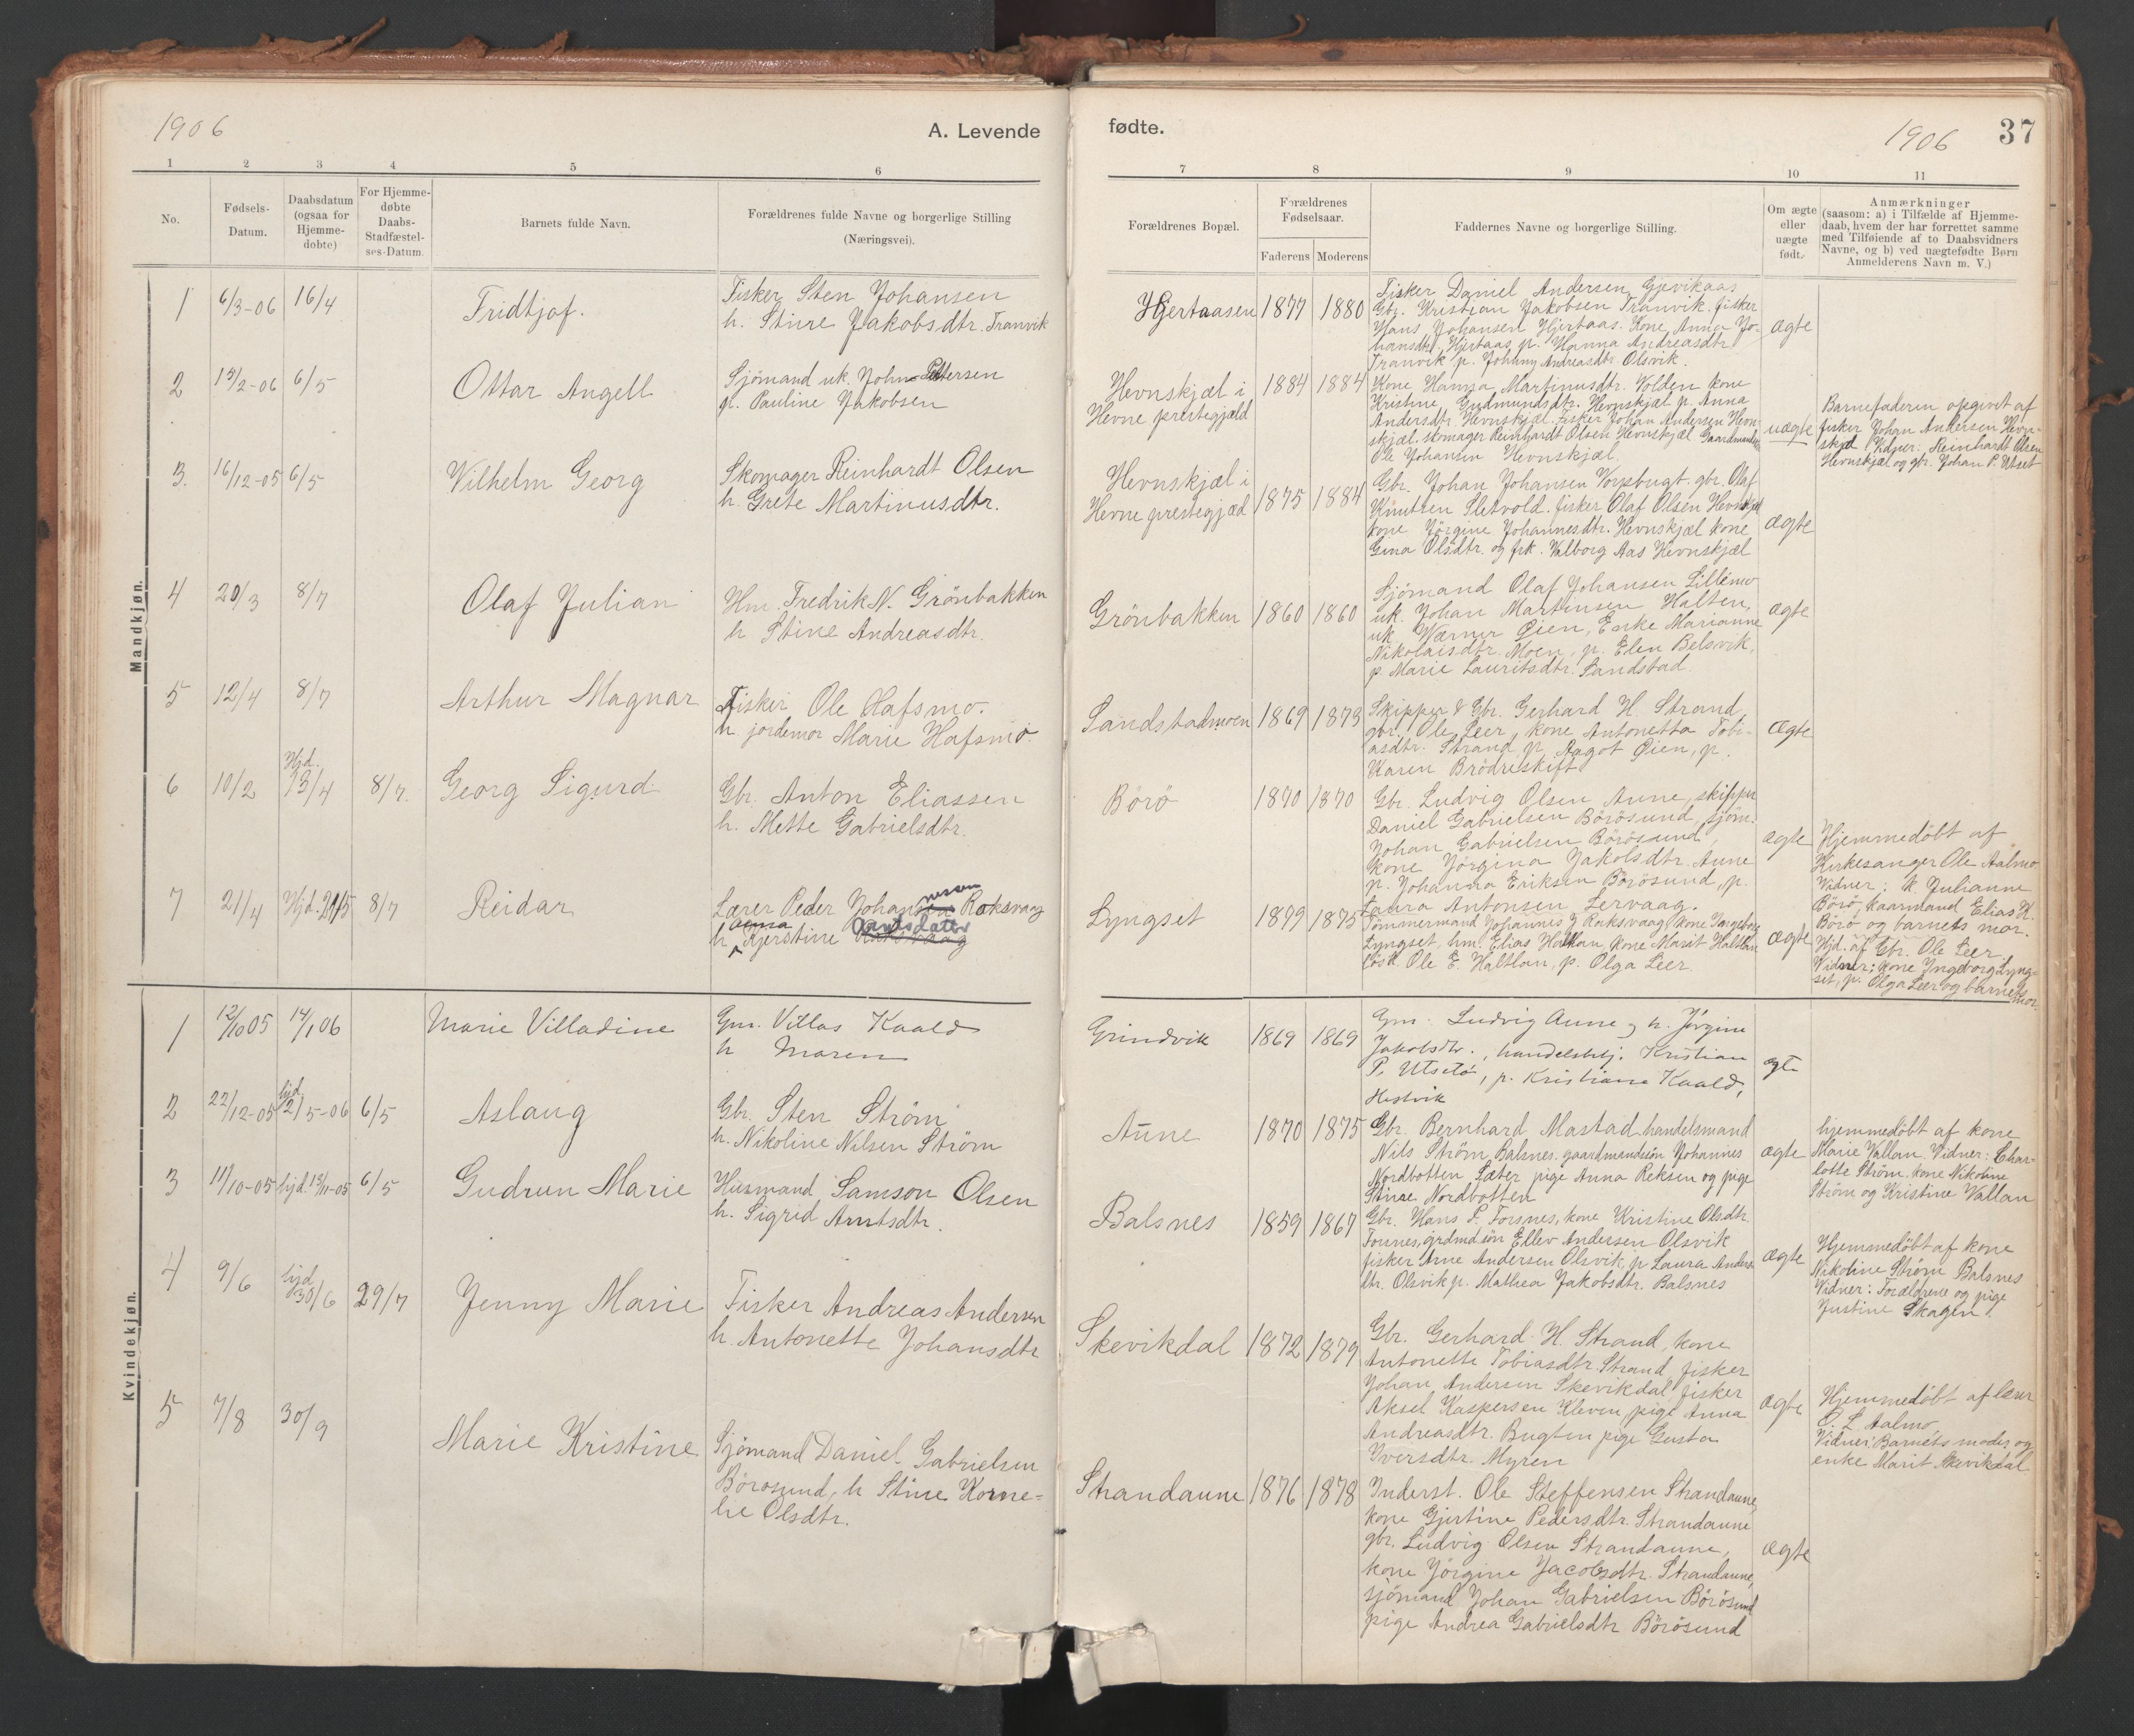 1906
A. Levende
1
2
3
4
5
6
No.
Fødsels-
Datum.
Daabsdatum
(ogsaa for
Hjemme-
døbte)
For Hjemme-
døbte
Daabs-
Stadfæstel-
ses-Datum.
Barnets fulde Navn.
Forældrenes fulde Navne og borgerlige Stilling
(Næringsvei).
Mandkjøn.
1 6/3-06 16/4 Fridtjof.
Fisker Sten Johansen
h. Stine Jakobsdtr. Tranvik
2 15/2-06 6/5 Ottar Angell
Sjömand uk. John Pettersen
p. Pauline Jakobsen
3. 16/12-05 6/5 Vilhelm Georg
Skomager Reinhardt Olsen
h. Grete Martinusdtr.
4 20/3 8/7 Olaf Julian
Hm. Fredrik N. Grönbakken
h Stine Andreasdtr.
5 12/4 8/7 Arthur Magnar
Fisker Ole Hafsmo.
h. jordemor Marie Hafsmo.
6 10/2 Hjd. 13/4 8/7. Georg Sigurd
Gbr. Anton Eliassen
h. Mette Gabrielsdtr.
7 21/4 Hjd. 29/5 8/7 Reidar
Lærer Peder Johannesen Roksvaag
h. Anna Kjerstine Arntsdatter
Kvindekjøn.
1 12/10 05 14/1 06 Marie Villadine
Gm. Villas Kaald
h Maren
2 22/12-05 hjd. 2/5-06 6/5 Aslaug
Gbr. Sten Ström
h. Nikoline Nilsen Ström
3 11/10-05 hjd. 15/11-05 6/5 Gudrun Marie
Husmand Samson Olsen
h. Sigrid Arntsdtr.
4 9/6 hjd 30/6 29/7 Jenny Marie
Fisker Andreas Andersen
h. Antonette Johansdtr
5 7/8 30/9 Marie Kristine
Sjömand Daniel Gabrielsen
Börösund, h Stine Korne-
lie Olsdtr.
fødte.
1906
37
7
8
9
10
11
Forældrenes Bopæl.
Forældrenes
Fødselsaar.
Faderens Moderens
Faddernes Navne og borgerlige Stilling.
Om ægte
eller
uægte
født.
Anmærkninger
(saasom: a) i Tilfælde af Hjemme-
daab, hvem der har forrettet samme
med Tilføiende af to Daabsvidners
Navne, og b) ved uægtefødte Børn
Anmelderens Navn m. V.)
Hjertaasen 1877 1880
Fisker Daniel Andersen Gjevikaas
Gbr. Kristian Jakobsen Tranvik. fisker
Hans Johansen Hjertaas. Kone Anna Jo-
hansdtr. Hjertaas p. Hanna Andreasdtr
Tranvik p. Johnny Andreasdtr. Olsvik.
ægte
Hevnskjæl i
Hevne prestegjæld
1884 1884
Kone Hanna Martinusdtr. Volden kone
Kristine Gudmundsdtr. Hevnskjæl p. Anna
Andersdtr. Hevnskjæl. Fisker Johan Andersen Hevn-
skjæl. skomager Reinhardt Olsen Hevnskjæl Gaardmandssön
Ole Johansen Hevnskjæl.
uægte
Barnefaderen opgivet af
fisker Johan Andersen Hevn-
skjæl. Reinhardt Olsen
Hevnskjæl og gbr. Johan P. Utset
Hevnskjæl i
Hevne prestegjæd
1875 1884
Gbr. Johan Johansen Vorpbugt. gbr. Olaf
Knutsen Sletvold. fisker Olaf Olsen Hevnskjæl
kone Jörgine Johannesdtr. Hevnskjæl kone
Gina Olsdtr. og frk. Valborg Aas Hevnskjæl
ægte
Grönbakken 1860 1860
Sjömand Olaf Johansen Lillemo
uk. Johan Martinsen Halten,
uk. Werner Øien, Enke Marianne
Nikolaisdtr. Moen, p. Elen Belsvik,
p. Marie Lauritsdtr. Sandstad
ægte
Sandstadmoen 1869 1873
Skipper & Gbr. Gerhard H Strand,
gbr. Ole Leer, kone Antonetta Tobi-
asdtr. Strand p. Aagot Øien, p.
Karen Brödreskift
ægte
Börö 1870 1870
Gbr. Ludvig Olsen Aune, skipper
Daniel Gabrielsen Börösund, sjöm.
Johan Gabrielsen Börösund,
kone Jörgina Jakobsdtr. Aune
p. Johanna Eriksen Börösund, p.
Laura Antonsen Lervaag.
ægte
Hjemmedöbt af
Kirkesanger Ole Aalmo
Vidner: k. Julianne
Börö, kaarmand Elias K.
Börö og barnets mor.
Lyngset 1879 1875
Tömmermand Johannes J Raksvaag, kone Ingeborg
Lyngset, hm. Elias Haltlan, kone Marit Haltlan
lösk. Ole E. Haltlan, p. Olga Leer.
ægte
Hjd. af Gbr. Ole Leer
Vidner: kone Ingeborg Lyng-
set, p. Olga Leer og barnets
mor.
Grindvik 1869 1869
Gm. Ludvig Aune, h. Jörgine
Jakobsdtr., handelsbtj. Kristian
P. Utsetö, p. Kristiane Kaald,
Hestvik
ægte
Aune 1870 1875
Gbr. Bernhard Mastad handelsmand
Nils Ström, Balsnes. gaardmandssön Johannes
Nordbotten Sæter pige Anna Reksen og pige
Stine Nordbotten
ægte
hjemmedöbt af kone
Marie Vallan. Vidner: Char-
lotte Ström. kone Nikoline
Ström og Kristine Vallan
Balsnes 1859 1867
Gbr. Hans P. Forsnes, kone Kristine Olsdtr.
Forsnes, grdmdsön Ellev Andersen Olsvik
fisker Arne Andersen Olsvik, p Laura Anders
dtr. Olsvik p. Mathea Jakobsdtr. Balsnes
ægte
Hjemmedöbt af kone
Nikoline Ström Balsnes
Vidner: Forældrene og pige
Justine Skagen.
Skevikdal 1872 1879
Gbr. Gerhard H. Strand, kone
Antonette Tobiasdtr. Strand, fisker
Johan Andersen Skevikdal, fisker
Aksel Kaspersen Kleven, pige Anna
Andreasdtr. Bugten pige Gusta
Iversdtr. Myren
ægte
Hjemmedöbt af lærer
O. L Aalmo,
Vidner: Barnets moder og
enke Marit Skevikdal
Strandaune 1876 1878
Inderst. Ole Steffensen Strandaune,
kone Gjertine Pedersdtr. Strandaune
gbr. Ludvig Olsen Strandaune,
kone Jörgine Jacobsdtr. Strandaune,
sjömand Johan Gabrielsen Börösund
pige Andrea Gabrielsdtr Börösund
ægte